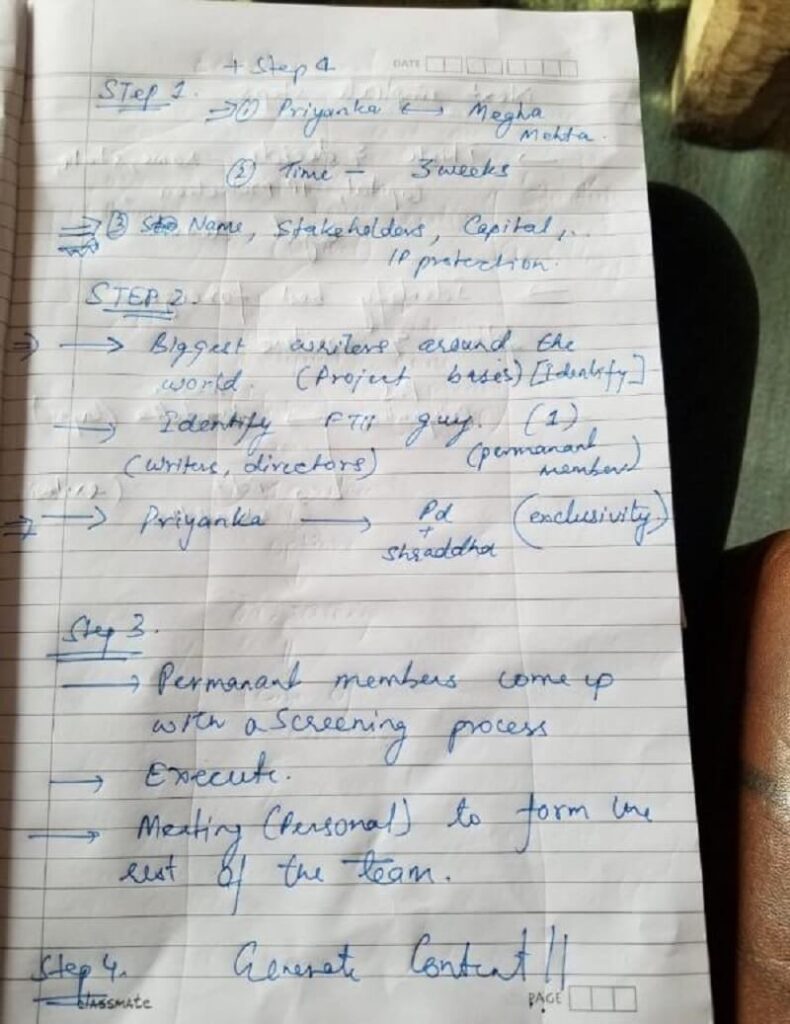 + Step 4
DATE
STep 1.
⇒ ① Priyanka ↔ Megha
Mehta.
② Time – 3 weeks
⇒ ③ Name, Stakeholders, Capital,...
IP protection.
STEP 2.
⇒ → Biggest writers around the
world. (Project bases) [Identify]
→ Identify FTII guy. (1)
(writers, directors) (permanant
members)
⇒ → Priyanka → Pd (exclusivity)
+
Shraddha
Step 3.
→ Permanant members come up
with a Screening process
→ Execute.
→ Meating (Personal) to form the
rest of the team.
Step 4. Generate Content!!
classmate
PAGE